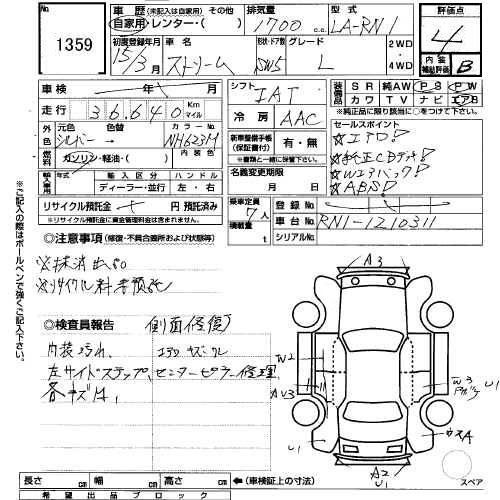 No. 1359
車歴 (未記入は自家用) その他
自家用・レンター・( )
排気量 1700 c.c.
型式 LA-RN1
評価点 4
初度登録年月 15/3月
車名 ストリーム
形状・ドア数 SW5
グレード L
2WD・4WD
内装補助評価 B
車検 年 月
走行 36640 Km マイル
シフト IAT
冷房 AAC
装備品 SR 純AW PS PW
カワ TV ナビ エアB
※純正品に限り該当に○をつけて下さい。
外色 元色 シルバー → 色替
カラーNo. NH623M
燃料 ガソリン・軽油・( )
内装色
新車整備手帳(保証書付) 有・無
※書類と一緒に保管して下さい。
セールスポイント
☆エアロ!
☆純正CDデッキ!
☆Wエアバック!
☆ABS!
輸入車 年式 輸入区分 ハンドル
ディーラー・並行 左・右
名義変更期限 月 日
リサイクル預託金 円 預託済み
※リサイクル預託金に資金管理料金は含まれません。
乗車定員 7人
積載量 t
登録No.
車台No. RN1-1210311
シリアルNo.
◎注意事項 (修復・不具合箇所および状態等)
※抹消出品
※リサイクル料未預託
◎検査員報告 側面修復
内装汚れ、エアロキズワレ
左サイドステップ、センターピラー修理
各キズ凹
A3
W2
AV3
U1
W3
U1
A2
U1
スペア
長さ cm 幅 cm 高さ cm ◀(車検証上の寸法)
希望出品ブロック
※ご記入の際はボールペンで強くご記入下さい。